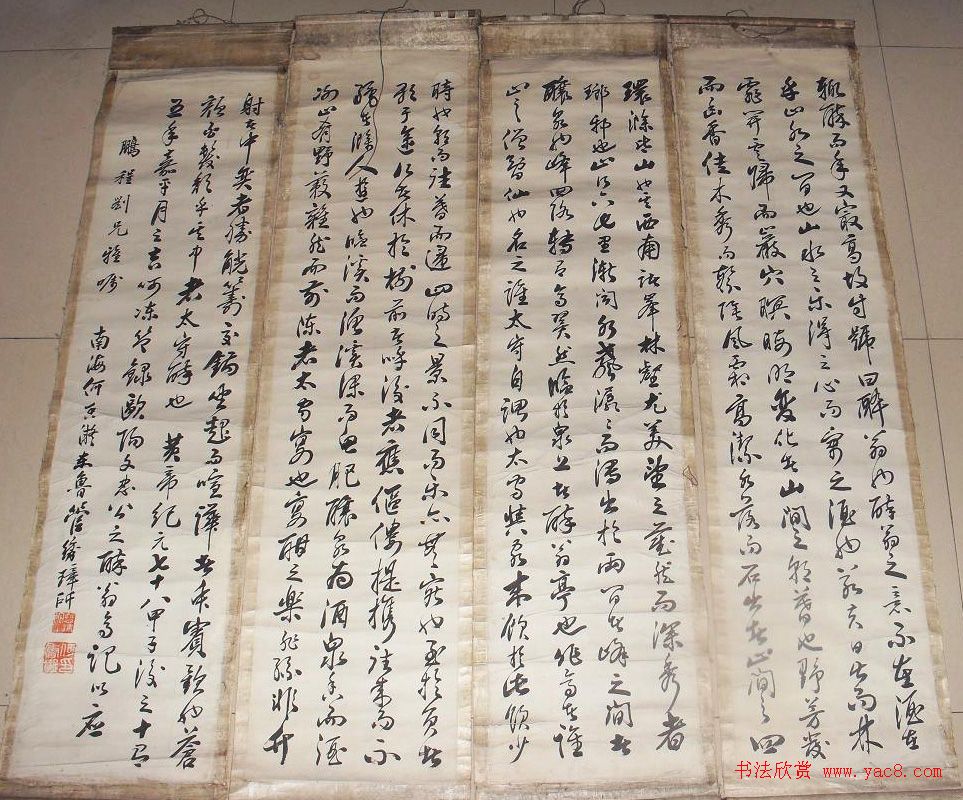 環滁皆山也其西南諸峯林壑尤美望之蔚然而深秀者
瑯邪也山行六七里漸聞水聲潺潺而瀉出於兩峰之間者
釀泉也峰回路轉有亭翼然臨於泉上者醉翁亭也作亭者誰
山之僧智仙也名之誰太守自謂也太守與客來飲於此飲少
輒醉而年又最高故自號曰醉翁也醉翁之意不在酒在
乎山水之間也山水之樂得之心而寓之酒也若夫日出而林
霏開雲歸而巖穴暝晦明變化者山間之朝暮也野芳發
而幽香佳木秀而繁陰風霜高潔水落而石出者山間之四
時也朝而往暮而還四時之景不同而樂亦無窮也至於負者
歌于塗行者休於樹前者呼後者應傴僂提攜往來而不
絕者滁人遊也臨溪而漁溪深而魚肥釀泉為酒泉香而酒
洌山肴野蔌雜然而前陳者太守宴也宴酣之樂非絲非竹
射者中奕者勝觥籌交錯坐起而喧譁者衆賓歡也蒼
顏白髮頹乎其中者太守醉也 黃帝紀元七十八甲子後之十有
五年嘉平月之吉呵凍筆錄歐陽文忠公之醉翁亭記以應
鵬程劉兄雅囑
南海何 東魯管
书法欣赏 www.yac8.com